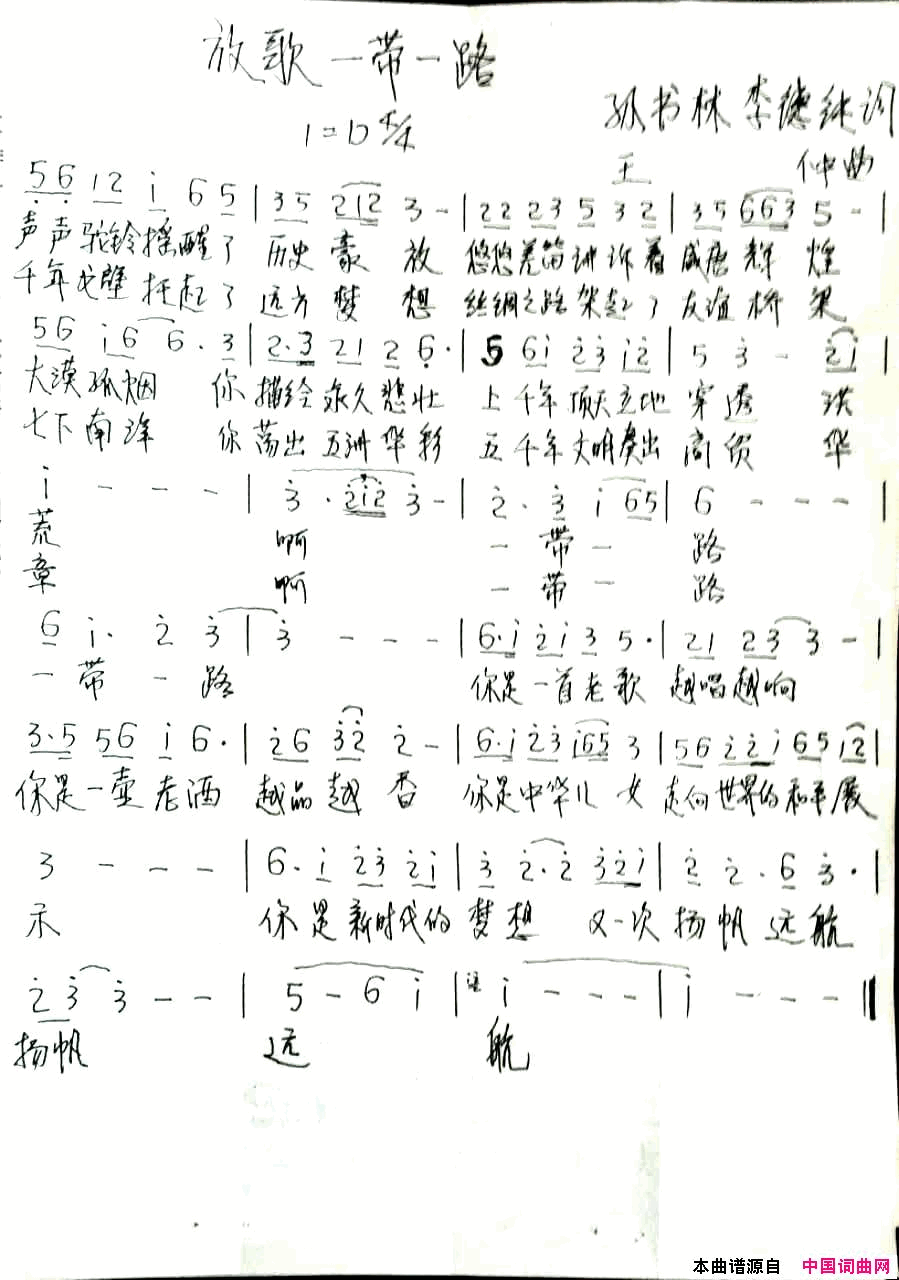 放歌一带一路
孙书林 李德纯词
1=D 4/4
王 仲曲
56 12 i 65 | 35 212 3 - | 22 23 5 32 | 35 663 5 - |
声声驼铃摇醒了 历史豪放 悠悠羌笛讲诉着盛唐辉煌
千年戈壁托起了 远方梦想 丝绸之路架起了友谊桥梁
56 i6 6. 3 | 2.3 21 2 6. | 5 6i 23 i2 | 5 3 - 2i |
大漠孤烟 你描绘永久悲壮 上千年顶天立地 穿透 洪
七下南洋 你荡出五洲华彩 五千年文明奏出 商贸 华
i - - - | 3 . 2i2 3 - | 2 . 3 i 65 | 6 - - - |
荒 啊 一带一 路
章 啊 一带一 路
6 i . 2 3 | 3 - - - | 6.i 2i 3 5 . | 21 23 3 - |
一带一路 你是一首老歌 越唱越响
3.5 56 i 6 . | 26 32 2 - | 6.i 23 i65 3 | 56 22i 65 i2 |
你是一壶老酒 越品越香 你是中华儿女 走向世界的和平展
3 - - - | 6 . i 23 2i | 3 2 . 2 32i | 2 2 . 6 3 . |
示 你是新时代的梦想 又一次扬帆远航
2 3 3 - - | 5 - 6 i | i - - - | i - - - ‖
扬帆 远 航
本曲谱源自 中国词曲网